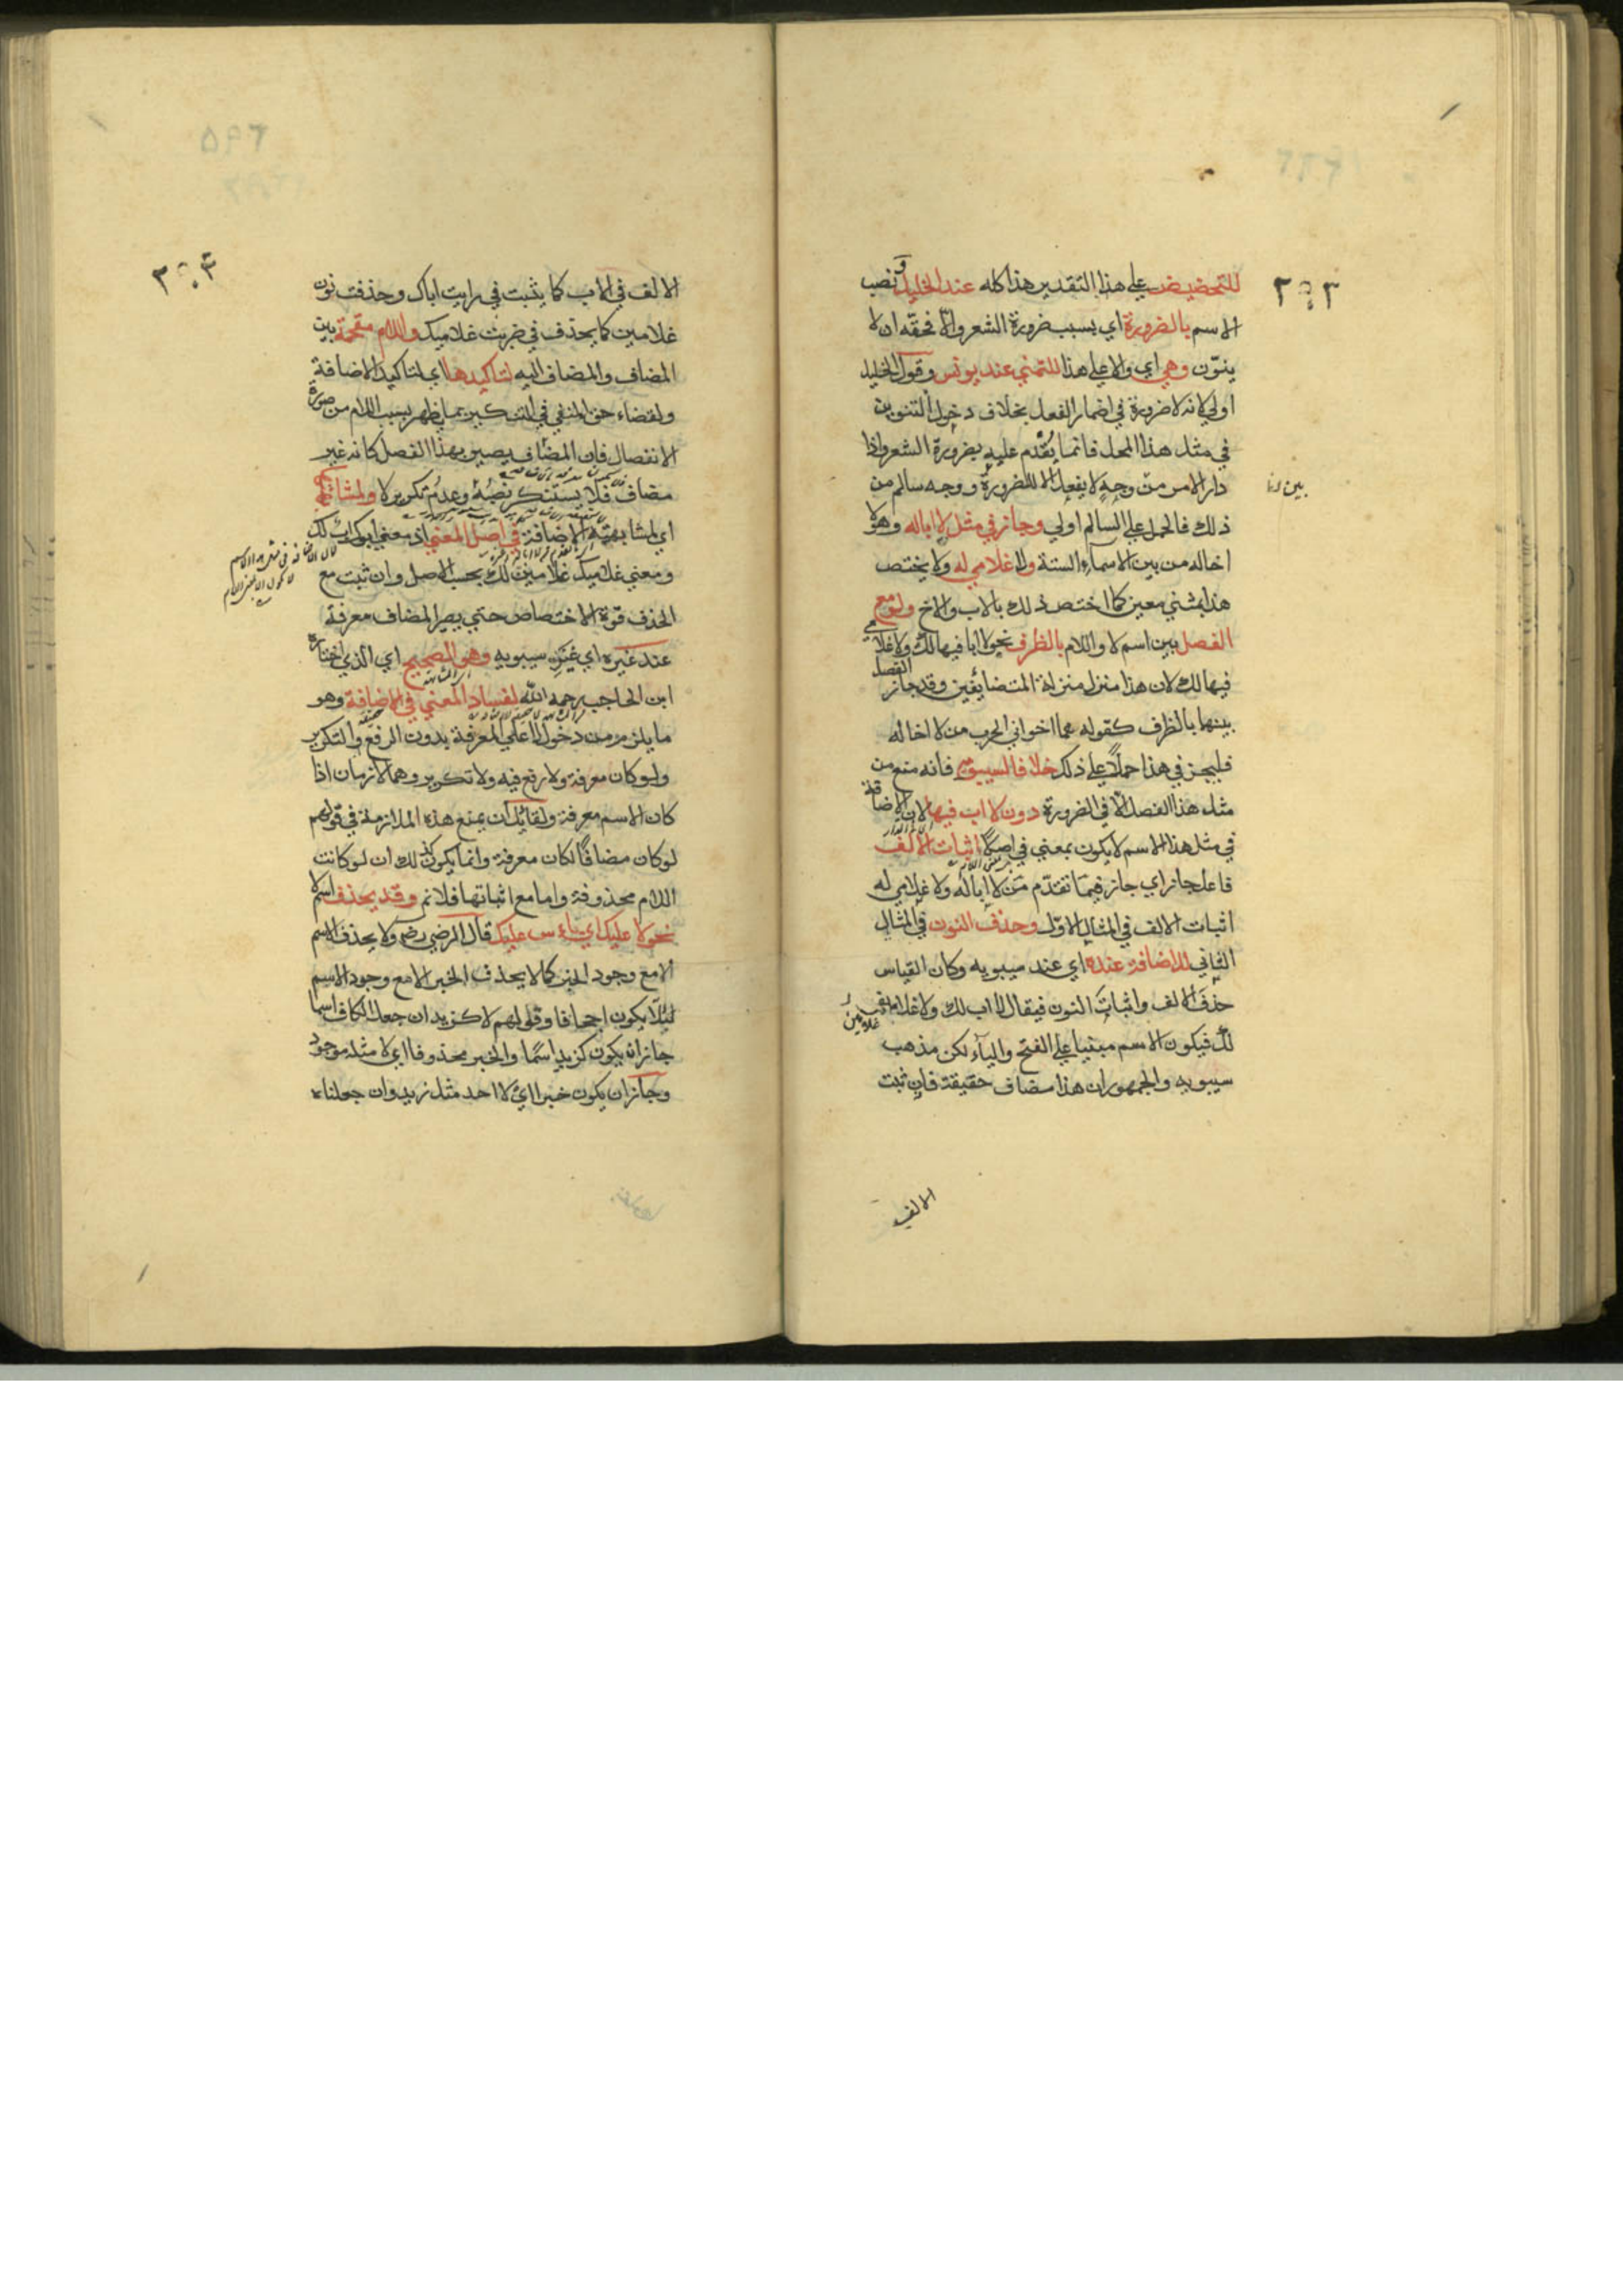 ٣٠٣
للتحضيض علي هذا التقدير هذا كله عند الخليل ونصب
الاسم بالضرورة اي بسبب ضرورة الشعر والا فحقه ان لا
ينون وهي اي والا علي هذا للتمني عند يونس وقول الخليل
اولي لانه لا ضرورة في اضمار الفعل بخلاف دخول التنوين
في مثل هذا المحل فانما يقدم عليه بضرورة الشعر واذا
دار الامر من وجه لا يفعل الا للضرورة ووجه سالم من
بين
ذلك فالحمل علي السالم اولي وجاز في مثل لا اباله وهو لا
اخاله من بين الاسماء الستة ولا غلامي له ولا يختص
هذا بمثني معين كما اختص ذلك بالاب والاخ ولو مع
الفصل بين اسم لا واللام بالظرف نحو لا ابا فيها لك ولا غلامي
فيها لك لان هذا منزل منزلة المتضائفين وقد جاز الفصل
بينهما بالظرف كقوله هما اخوا في الحرب من لا اخا له
فليجز في هذا حملا علي ذلك خلافا لسيبويه فانه منع من
مثل هذا الفصل الا في الضرورة دون لا اب فيها لان الاضافة
في مثل هذا الاسم لا يكون بمعني في اصلا اثبات الالف
فاعل جاز اي جاز فيما تقدم من لا اباله ولا غلامي له
اثبات الالف في المثال الاول وحذف النون في المثال
الثاني للاضافة عنده اي عند سيبويه وكان القياس
حذف الالف واثبات النون فيقال لا اب لك ولا غلامين
لك فيكون الاسم مبنيا علي الفتح والياء لكن مذهب
سيبويه والجمهور ان هذا مضاف حقيقة فان ثبت
الالف
٣٠٤
الالف في الاب كما يثبت في رايت اباك وحذفت نون
غلامين كما يحذف في ضربت غلاميك واللام مقحمة بين
المضاف والمضاف اليه لتاكيدها اي لتاكيد الاضافة
ولقضاء حق المنفي في التنكير بما يظهر بسبب اللام من صورة
الانفصال فان المضاف يصير بهذا الفصل كانه غير
مضاف فلا يستنكر نصبه وعدم تكرير لا ولمشابهة
اي لمشابهته الاضافة في اصل المعني اذ معني ابوك اب لك
ومعني غلاميك غلامين لك بحسب الاصل وان ثبت مع
الحذف قوة الاختصاص حتي يصير المضاف معرفة
عند غيره اي غير سيبويه وهو الصحيح اي الذي اختاره
ابن الحاجب رحمه الله لفساد المعني في الاضافة وهو
ما يلزم من دخول لا علي المعرفة بدون الرفع والتكرير
ولو كان معرفة ولا رفع فيه ولا تكرير وهما لازمان اذا
كان الاسم معرفة ولقائل ان يمنع هذه الملازمة في قولهم
لو كان مضافا لكان معرفة وانما يكون كذلك ان لو كانت
اللام محذوفة واما مع اثباتها فلا نم وقد يحذف اسم لا
نحو لا عليك اي لا باس عليك قال الرضي رضه ولا يحذف الاسم
الا مع وجود الخبر كما لا يحذف الخبر الا مع وجود الاسم
لئلا يكون اجحافا وقولهم لا كزيد ان جعل الكاف اسما
جاز ان يكون كزيد اسما والخبر محذوفا اي لا مثله موجود
وجاز ان يكون خبرا اي لا احد مثل زيد وان جعلناه